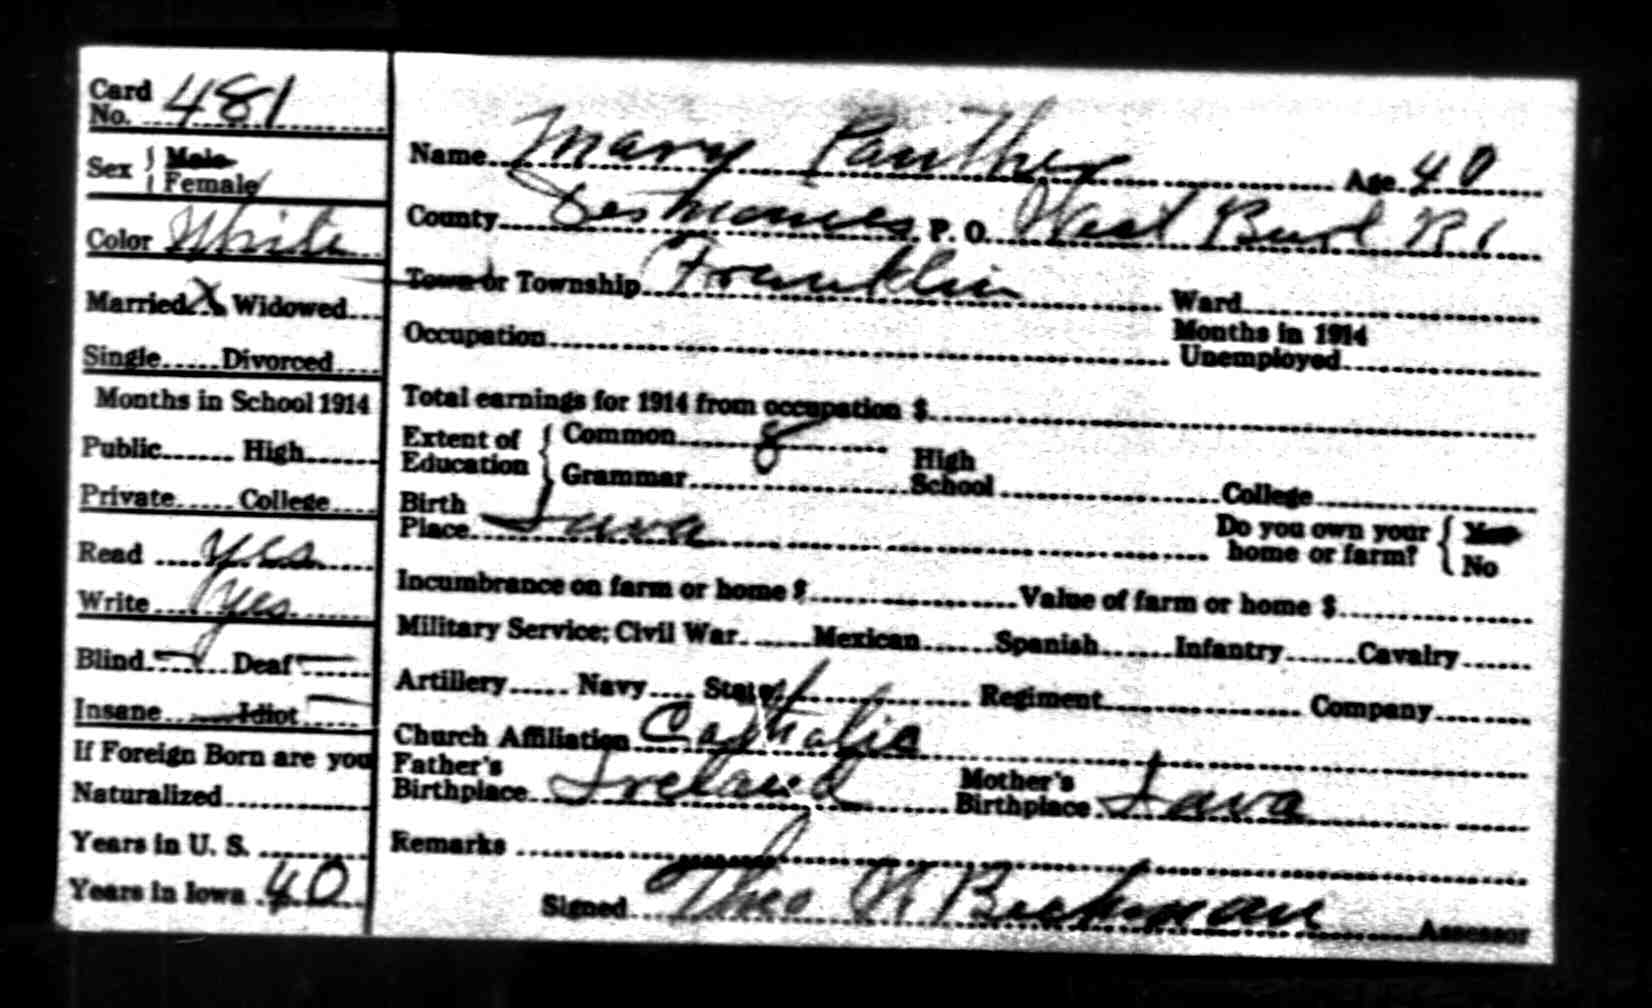 Card No. 481
Sex Male Female
Color White
Married X Widowed
Single Divorced
Months in School 1914
Public High
Private College
Read Yes
Write Yes
Blind — Deaf —
Insane — Idiot —
If Foreign Born are you
Naturalized
Years in U. S.
Years in Iowa 40
Name Mary Panther Age 40
County Desmoines P. O. West Burl R 1
Town or Township Franklin Ward
Occupation Months in 1914 Unemployed
Total earnings for 1914 from occupation $
Extent of Education Common 8
Grammar High School College
Birth Place Iowa Do you own your home or farm? Yes No
Incumbrance on farm or home $ Value of farm or home $
Military Service; Civil War Mexican Spanish Infantry Cavalry
Artillery Navy State Regiment Company
Church Affiliation Catholic
Father's Birthplace Ireland Mother's Birthplace Iowa
Remarks
Signed Theo N Beckman Assessor